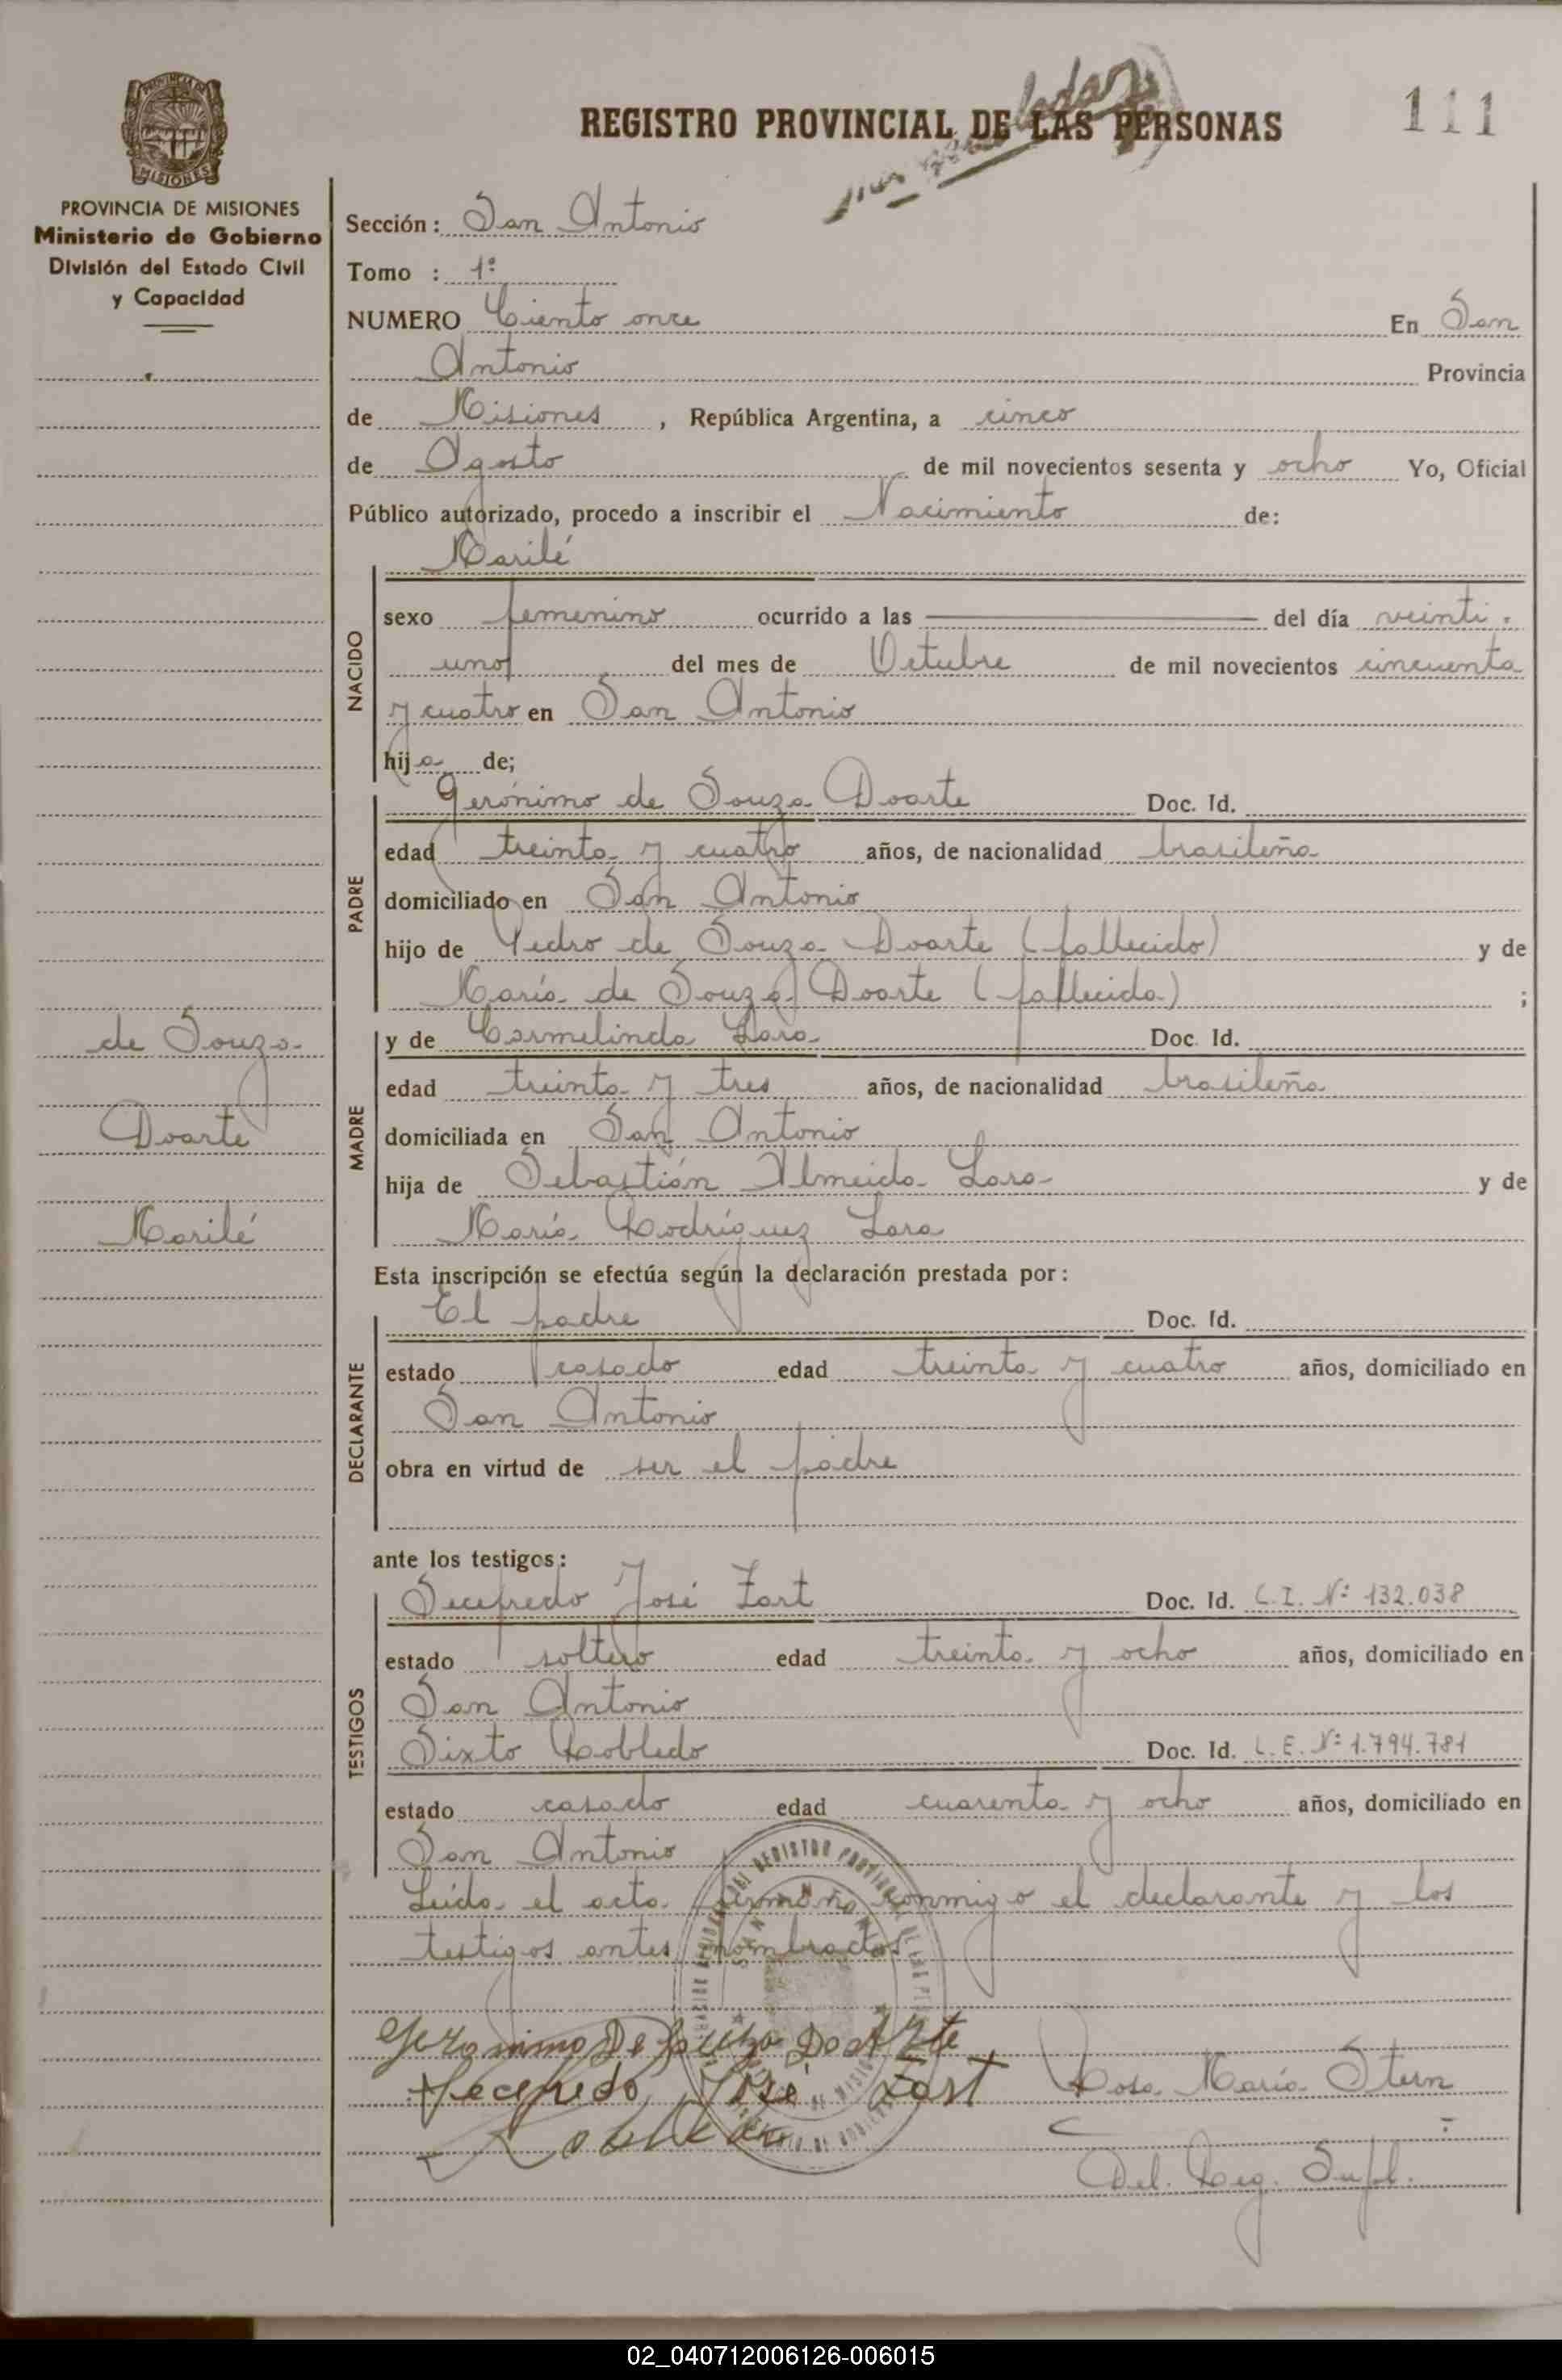 111
REGISTRO PROVINCIAL DE LAS PERSONAS
PROVINCIA DE MISIONES
Ministerio de Gobierno
División del Estado Civil
y Capacidad
Sección: San Antonio
Tomo : 1º
NUMERO Ciento once En San
Antonio Provincia
de Misiones, República Argentina, a cinco
de Agosto de mil novecientos sesenta y ocho Yo, Oficial
Público autorizado, procedo a inscribir el Nacimiento de:
Marilé
NACIDO
sexo femenino ocurrido a las ——— del día veinti-
uno del mes de Octubre de mil novecientos cincuenta
y cuatro en San Antonio
hija de;
PADRE
Gerónimo de Souza Doarte Doc. Id.
edad treinta y cuatro años, de nacionalidad brasileña
domiciliado en San Antonio
hijo de Pedro de Souza Doarte (fallecido) y de
María de Souza Doarte (fallecida) ;
de Souza
Doarte
Marilé
MADRE
y de Carmelinda Lara Doc. Id.
edad treinta y tres años, de nacionalidad brasileña
domiciliada en San Antonio
hija de Sebastián Almeida Lara y de
María Rodríguez Lara
Esta inscripción se efectúa según la declaración prestada por:
DECLARANTE
El padre Doc. Id.
estado casado edad treinta y cuatro años, domiciliado en
San Antonio
obra en virtud de ser el padre
ante los testigos:
TESTIGOS
Secefredo José Zart Doc. Id. C.I. Nº 132.038
estado soltero edad treinta y ocho años, domiciliado en
San Antonio
Sixto Robledo Doc. Id. L.E. Nº 1.794.781
estado casado edad cuarenta y ocho años, domiciliado en
San Antonio
Leída el acta firman conmigo el declarante y los
testigos antes nombrados
Geronimo De Souza Doarte
Secefredo José Zart
Rosa María Stern
Robledo
Del. Reg. Supl.
02_040712006126-006015